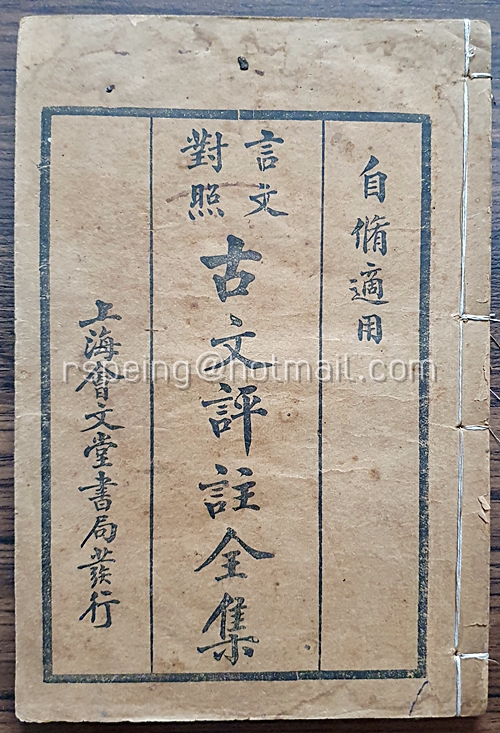 自脩適用
言文對照
古文評註全集
上海會文堂書局發行
rspeing@hotmail.com